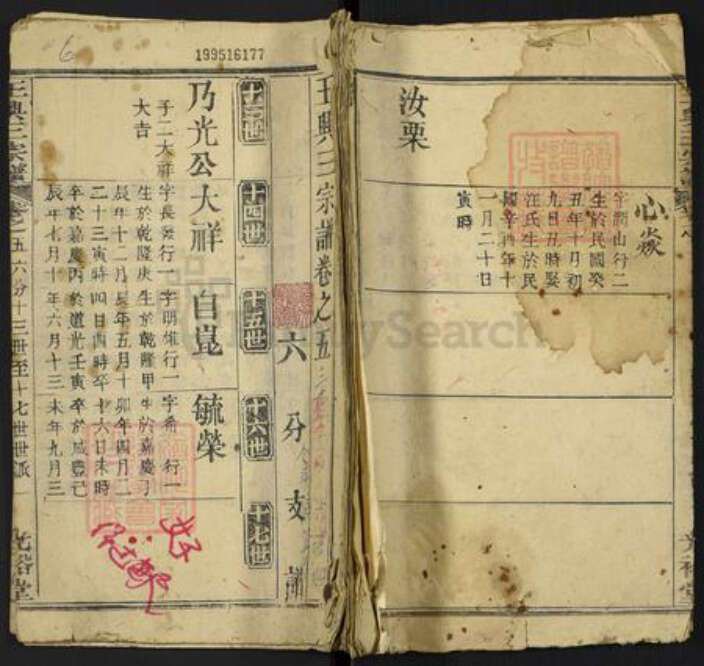 199516177
汝栗
心燚
字潤山行二
生於民國癸
丑年十月初
九日丑時娶
汪氏生於民
國辛酉年十
一月二十日
寅時
王興三宗譜卷之五
六分支譜
十三世
十四世
十五世
十六世
十七世
乃光公
子二大祥
大吉
大祥
字長發行一
生於乾隆庚
辰年十二月
二十三寅時
卒於嘉慶丙
辰年七月十
自崑
字明雄行一
生於乾隆甲
辰年五月十
四日酉時卒
於道光壬寅
年六月十三
毓榮
字希 行一
生於嘉慶丁
卯年四月二
十六日未時
卒於咸豐己
未年九月三
王興三宗譜
卷之五 六分十三世至十七世世派
光裕堂
FamilySearch